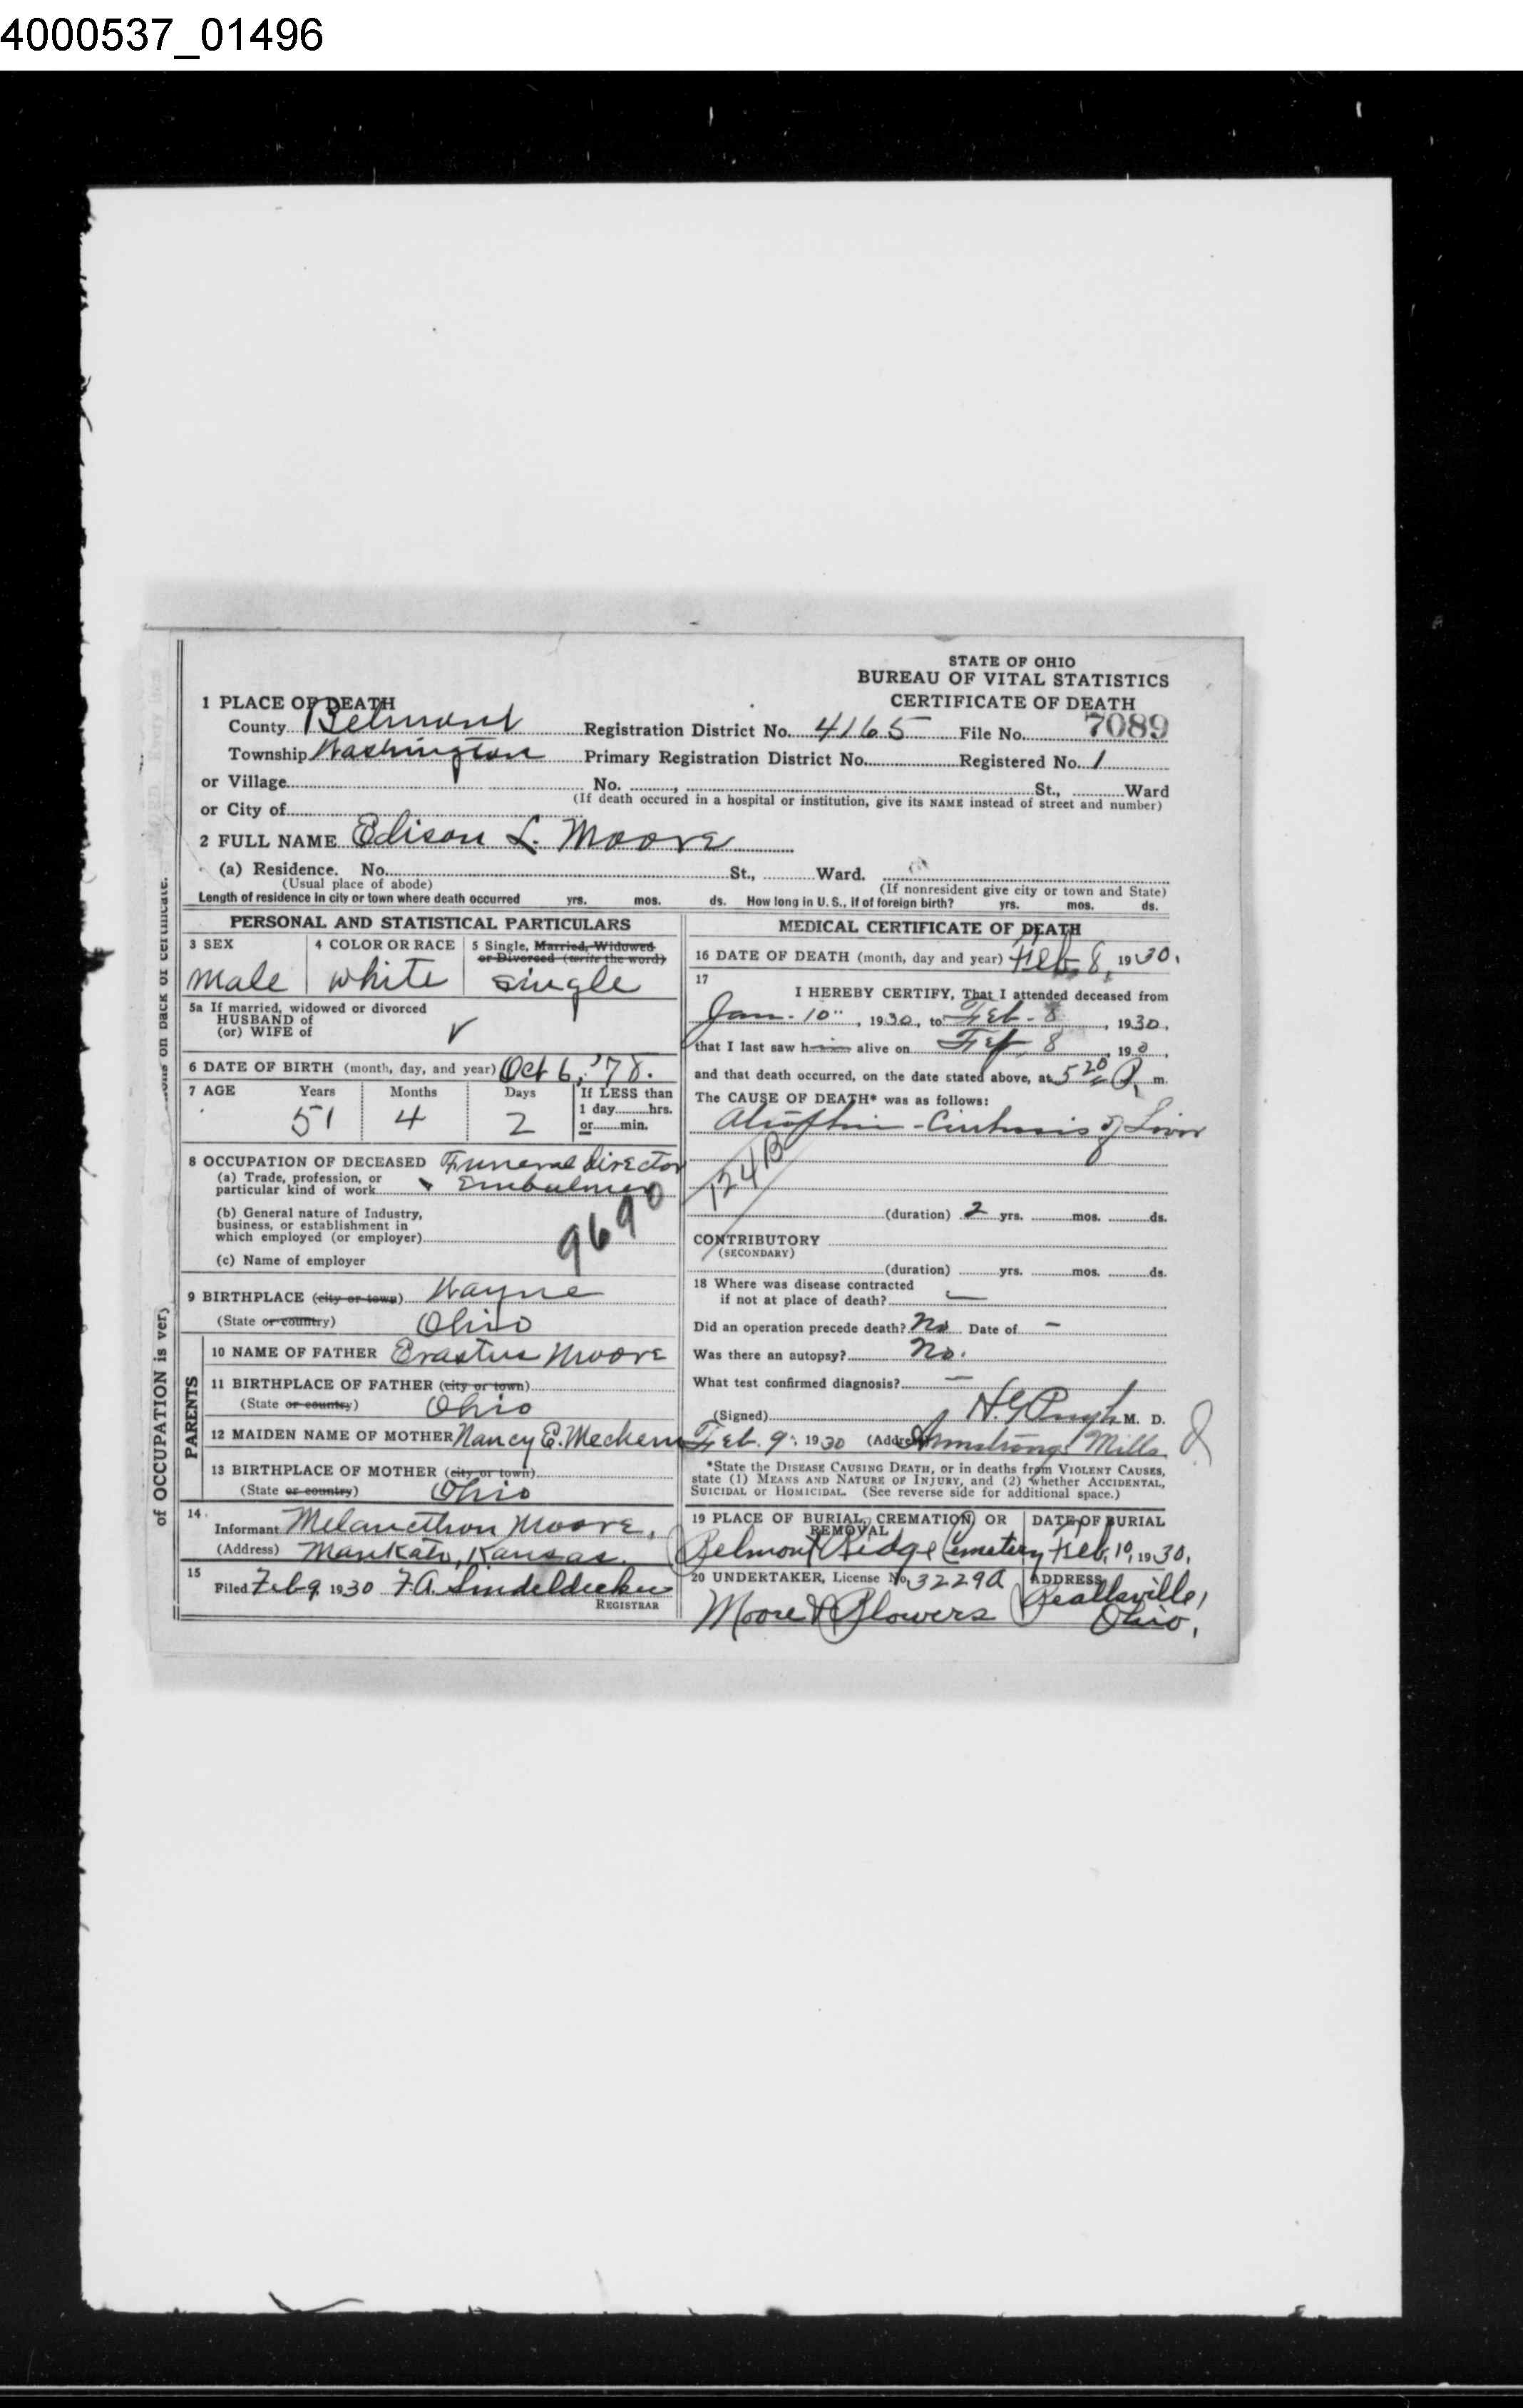 4000537_01496
STATE OF OHIO
BUREAU OF VITAL STATISTICS
CERTIFICATE OF DEATH
1 PLACE OF DEATH
County Belmont Registration District No. 4165 File No. 7089
Township Washington Primary Registration District No. Registered No. 1
or Village No. , St., Ward
(If death occured in a hospital or institution, give its NAME instead of street and number)
or City of
2 FULL NAME Edison L. Moore
(a) Residence. No. St., Ward.
(Usual place of abode) (If nonresident give city or town and State)
Length of residence in city or town where death occurred yrs. mos. ds. How long in U. S., if of foreign birth? yrs. mos. ds.
PERSONAL AND STATISTICAL PARTICULARS
3 SEX 4 COLOR OR RACE 5 Single, Married, Widowed
or Divorced (write the word)
male white single
5a If married, widowed or divorced
HUSBAND of
(or) WIFE of
6 DATE OF BIRTH (month, day, and year) Oct 6, '78.
7 AGE Years Months Days If LESS than
1 day hrs.
or min.
51 4 2
8 OCCUPATION OF DECEASED Funeral Director
(a) Trade, profession, or
particular kind of work & Embalmer
(b) General nature of Industry,
business, or establishment in
which employed (or employer)
9690
(c) Name of employer
9 BIRTHPLACE (city or town) Wayne
(State or country) Ohio
PARENTS
10 NAME OF FATHER Erastus Moore
11 BIRTHPLACE OF FATHER (city or town)
(State or country) Ohio
12 MAIDEN NAME OF MOTHER Nancy E. Mechem
13 BIRTHPLACE OF MOTHER (city or town)
(State or country) Ohio
14
Informant Melancthon Moore,
(Address) Mankato, Kansas.
15
Filed Feb 9 1930 F.A. Lindeldecker
REGISTRAR
MEDICAL CERTIFICATE OF DEATH
16 DATE OF DEATH (month, day and year) Feb. 8, 1930.
17
I HEREBY CERTIFY, That I attended deceased from
Jan. 10", 1930, to Feb. 8, 1930,
that I last saw him alive on Feb 8, 190,
and that death occurred, on the date stated above, at 5 20 P. m.
The CAUSE OF DEATH* was as follows:
Cirrhosis of Liver
124B
(duration) 2 yrs. mos. ds.
CONTRIBUTORY
(SECONDARY)
(duration) yrs. mos. ds.
18 Where was disease contracted
if not at place of death? —
Did an operation precede death? No Date of —
Was there an autopsy? No.
What test confirmed diagnosis? —
(Signed) H G Pugh M. D.
Feb. 9, 1930 (Address) Armstrongs Mills
*State the DISEASE CAUSING DEATH, or in deaths from VIOLENT CAUSES,
state (1) MEANS AND NATURE OF INJURY, and (2) whether ACCIDENTAL,
SUICIDAL or HOMICIDAL. (See reverse side for additional space.)
19 PLACE OF BURIAL, CREMATION, OR
REMOVAL
DATE OF BURIAL
Belmont Ridge Cemetery Feb, 10, 1930,
20 UNDERTAKER, License No. 3229A ADDRESS
Moore & Plowers Beallsville,
Ohio,
of OCCUPATION is very